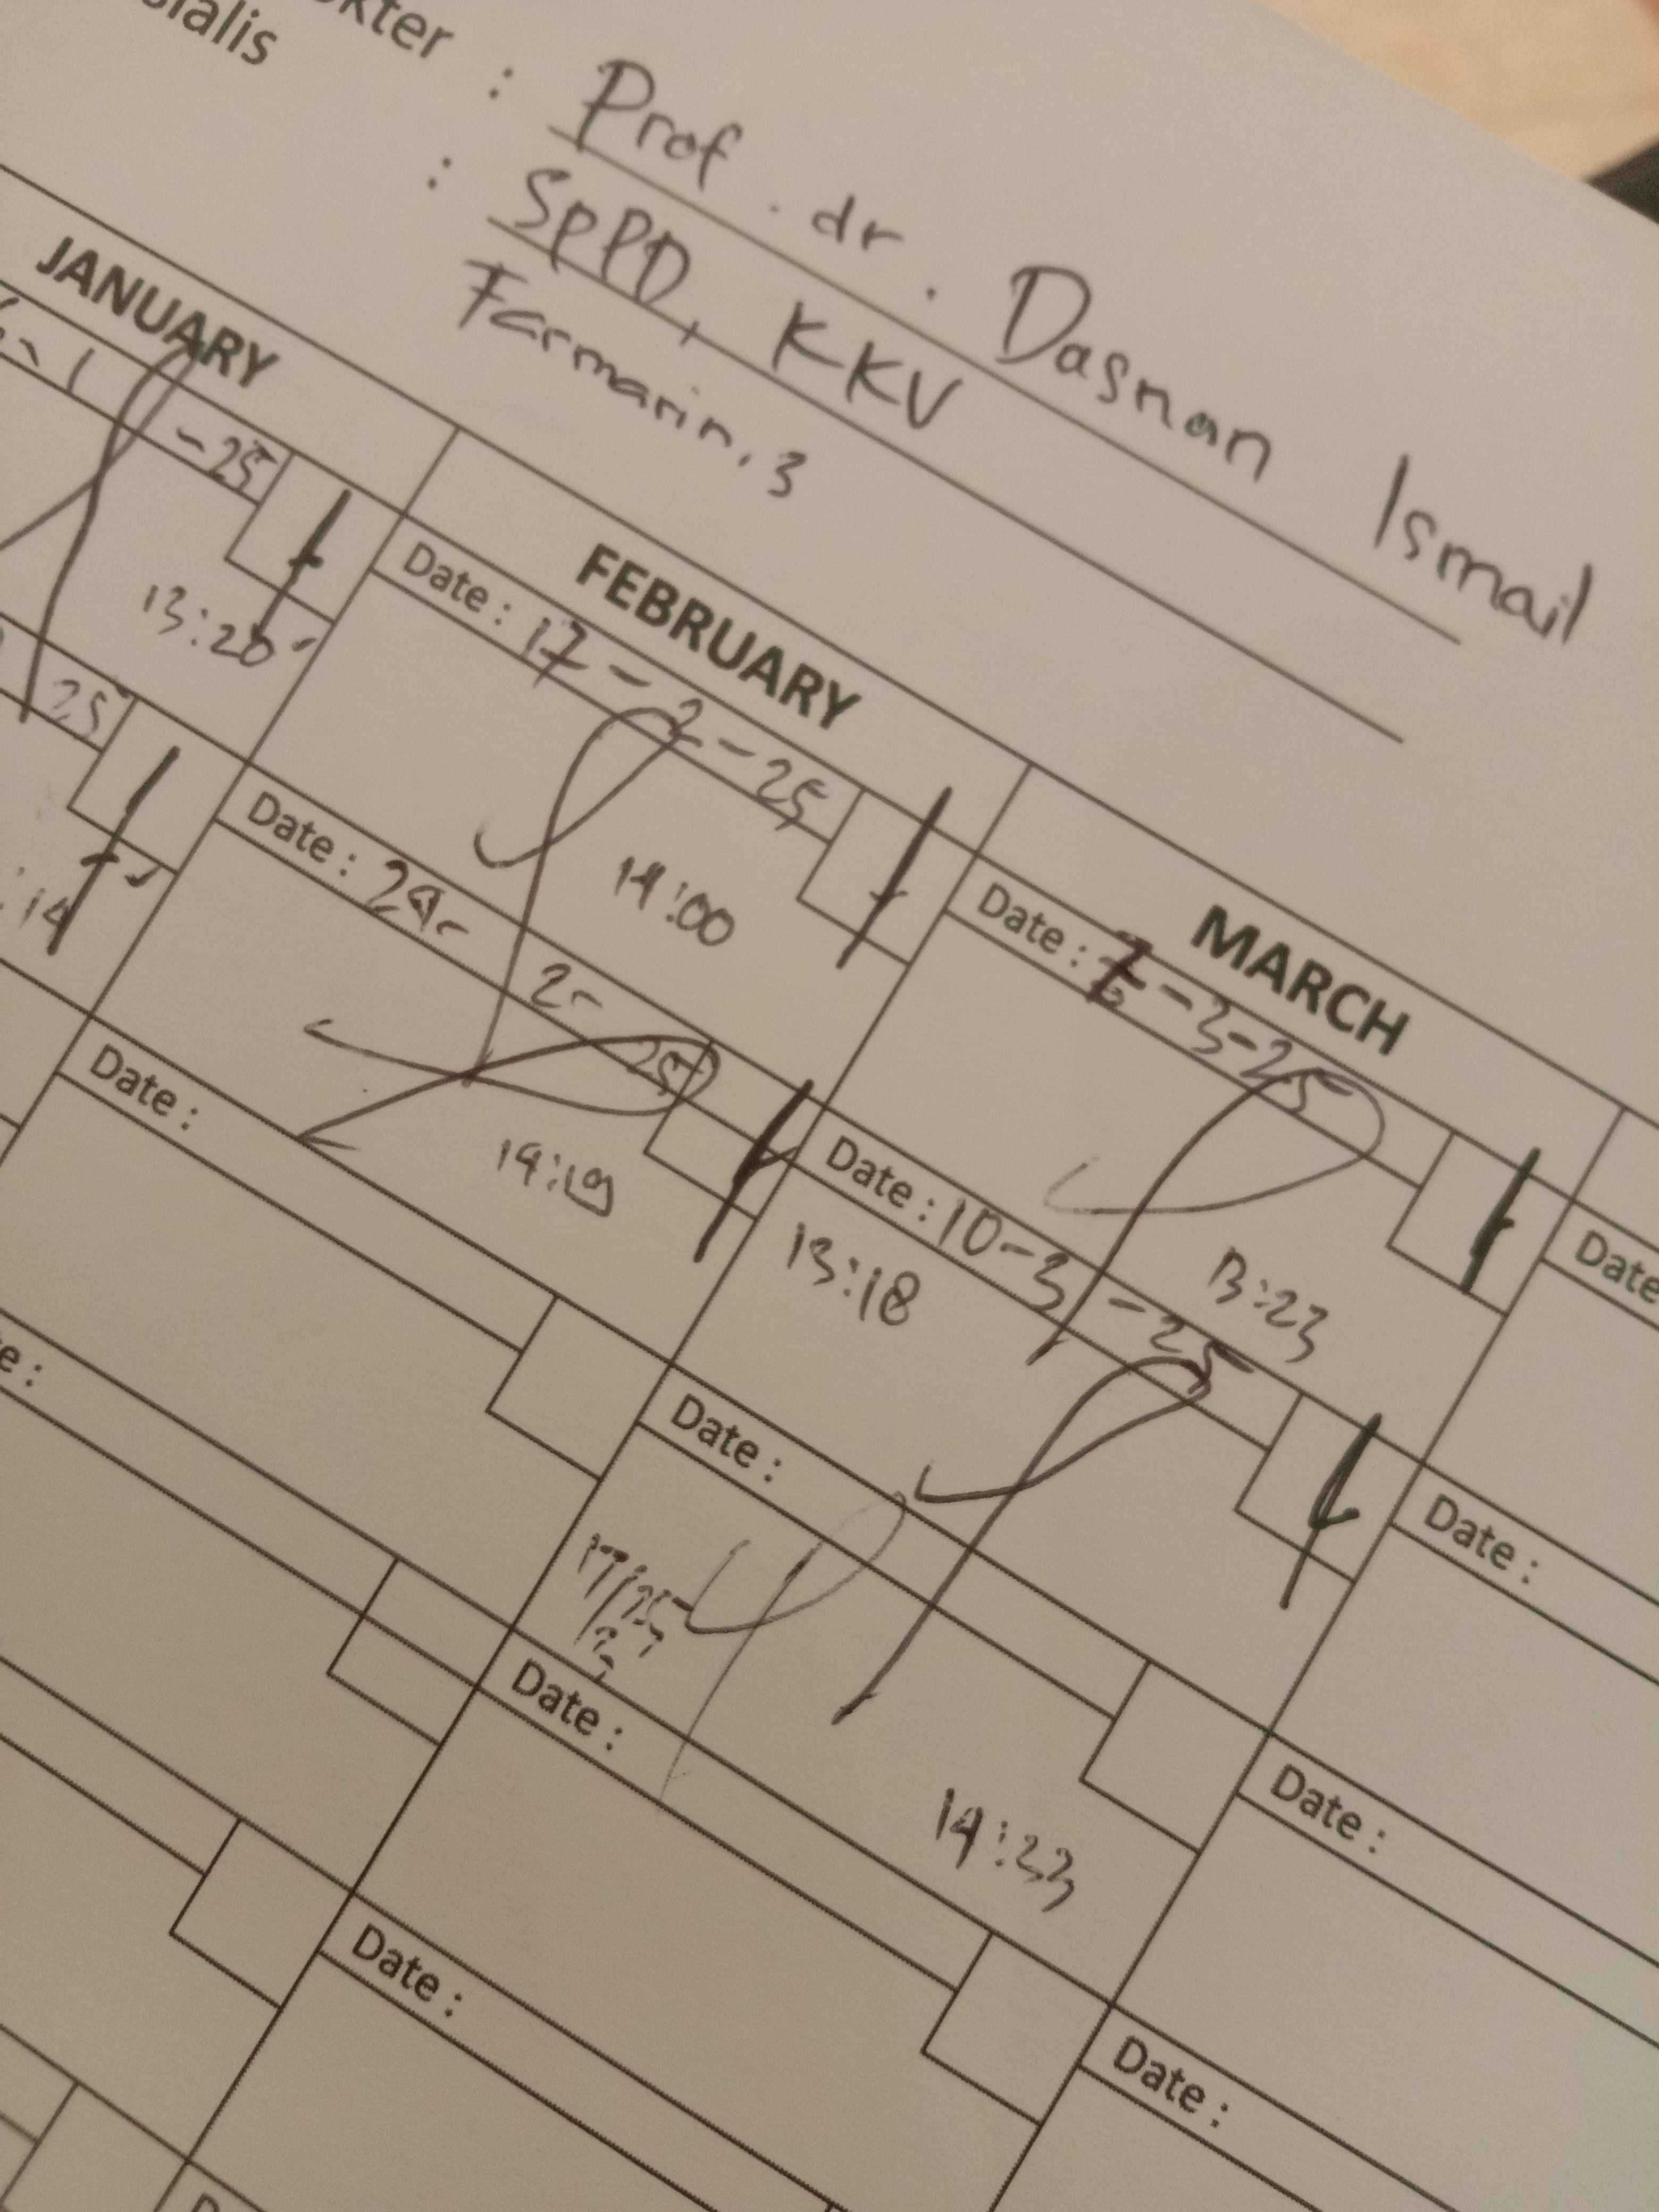 : Prof. dr. Dasnan Ismail
: SpPD, KKV
Farmarin, 3
JANUARY
-25
13:20
25
FEBRUARY
Date : 17-2-25
14:00
Date : 24-2-25
14:19
Date :
MARCH
Date : 7-3-25
13:23
Date : 10-3-25
13:18
Date :
17/25
3
14:23
Date :
Date :
Date
Date :
Date :
Date :